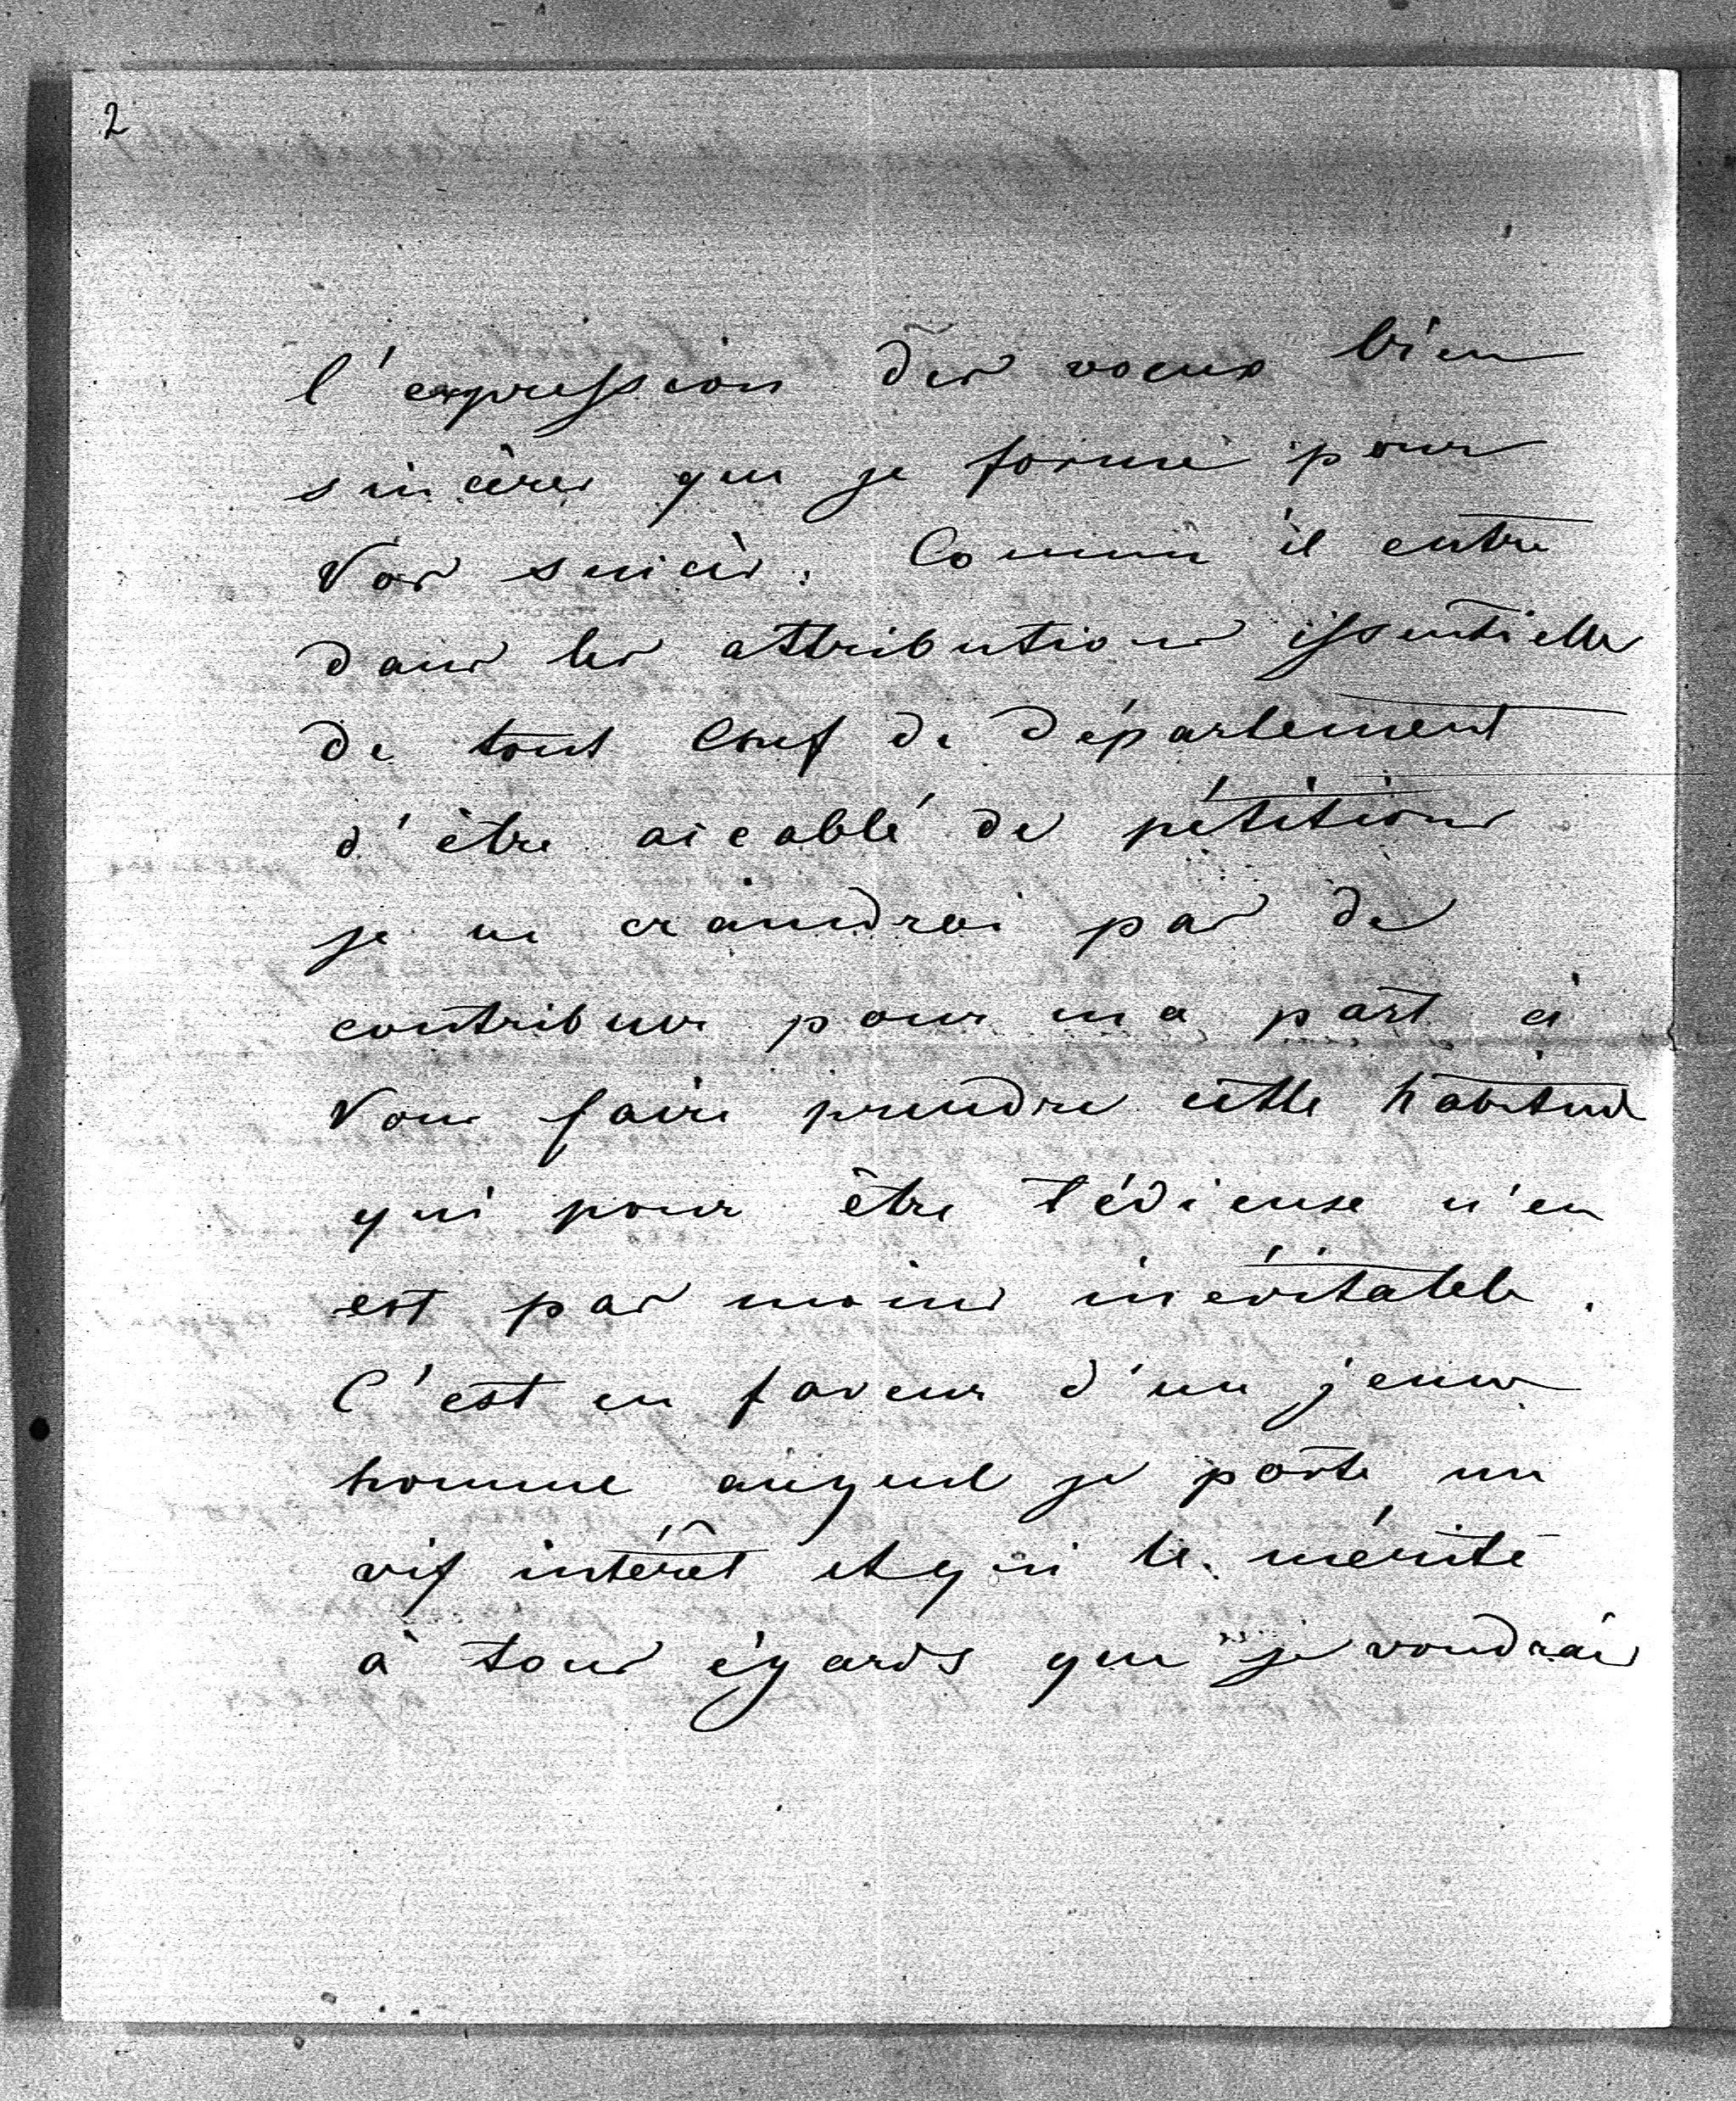 2
l'expression des voeux bien
sincères que je forme pour
Vos succès. Comme il entre
dans les attributions essentielles
de tout Chef de Département
d'être accablé de pétitions
je ne craindrai pas de
contribuer pour ma part à
Vous faire prendre cette habitude
qui pour être tédieuse n'en
est pas moins inévitable.
C'est en faveur d'un jeune
homme auquel je porte un
vif intérêt et qui le mérite
à tous égards que je voudrais